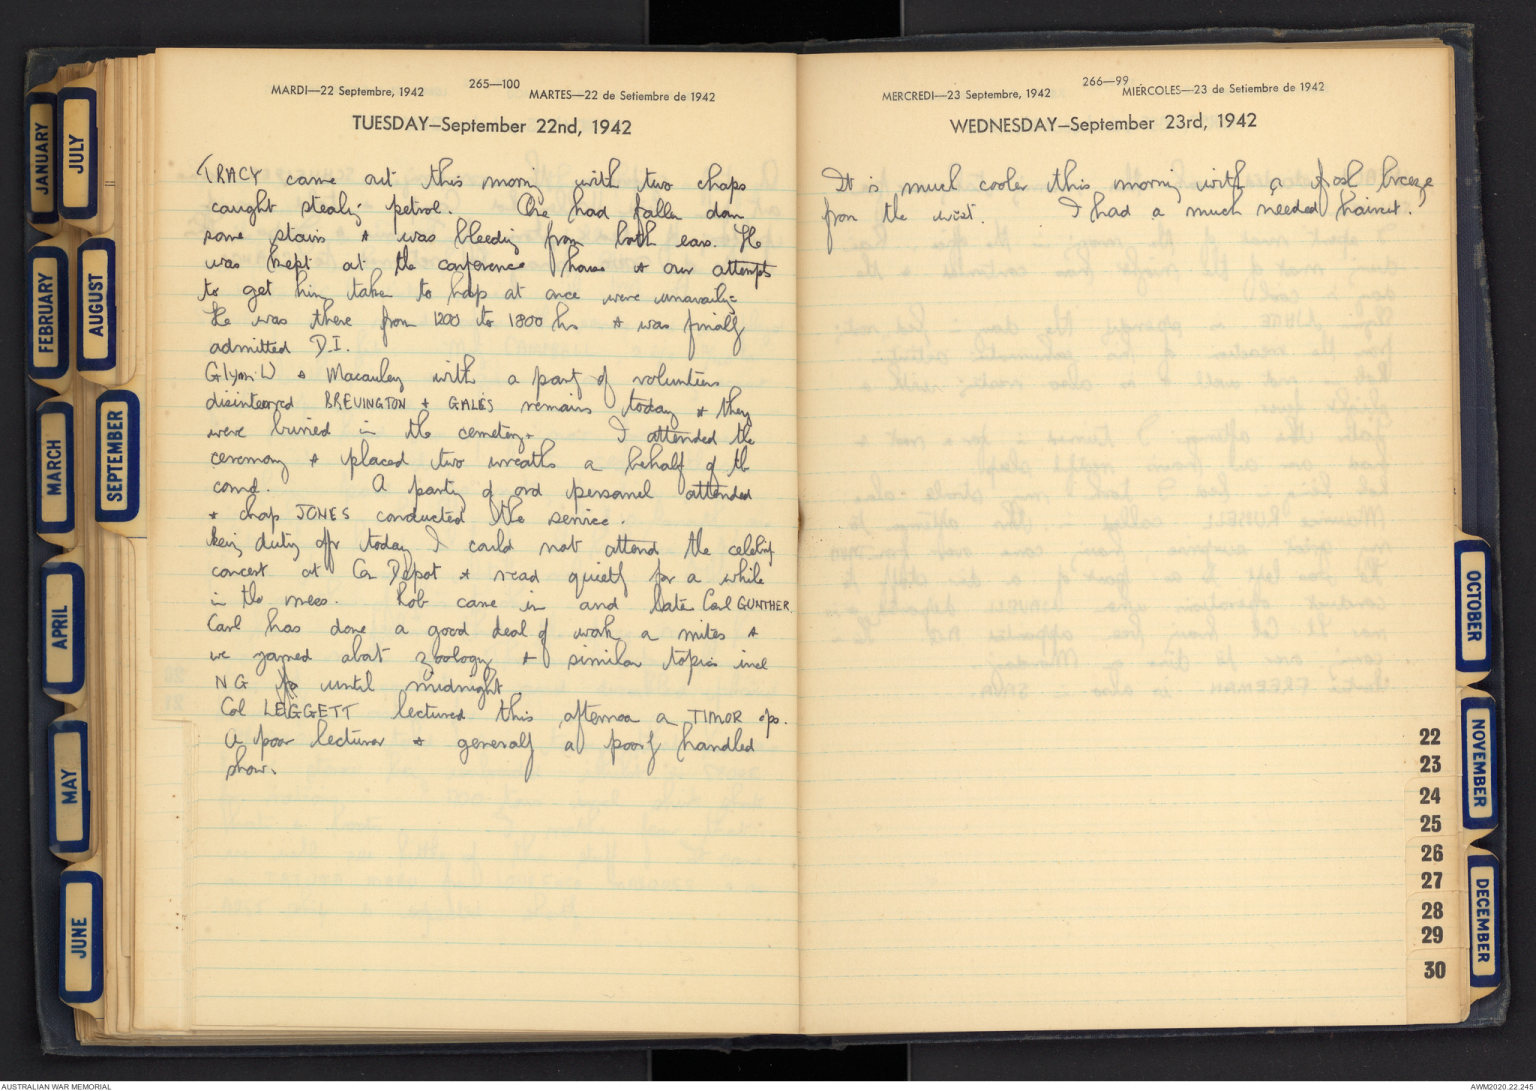 JANUARY
JULY
FEBRUARY
AUGUST
MARCH
SEPTEMBER
APRIL
MAY
JUNE
265—100
MARDI—22 Septembre, 1942
MARTES—22 de Setiembre de 1942
TUESDAY—September 22nd, 1942
TRACY came out this morning with two chaps
caught stealing petrol. One had fallen down
some stairs & was bleeding from both ears. He
was kept at the conference house & our attempts
to get him taken to hosp at once were unavailing
He was there from 1200 to 1800 hrs & was finally
admitted D.I.
Glynn W & Macauley with a party of volunteers
disinterred BREVINGTON & GALES remains today & they
were buried in the cemetery. I attended the
ceremony & placed two wreaths on behalf of the
comd. A party of ord personnel attended
& chap JONES conducted the service.
Being duty offr today I could not attend the celebrity
concert at Con Depot & read quietly for a while
in the mess. Rob came in and later Carl GUNTHER.
Carl has done a good deal of work on mites &
we yarned about zoology & similar topics incl
NG until midnight
Col LEGGETT lectured this afternoon on TIMOR ops.
A poor lecturer & generally a poorly handled
show.
266—99
MERCREDI—23 Septembre, 1942
MIÉRCOLES—23 de Setiembre de 1942
WEDNESDAY—September 23rd, 1942
It is much cooler this morning with a fresh breeze
from the west. I had a much needed haircut.
22
23
24
25
26
27
28
29
30
OCTOBER
NOVEMBER
DECEMBER
AUSTRALIAN WAR MEMORIAL
AWM2020.22.245